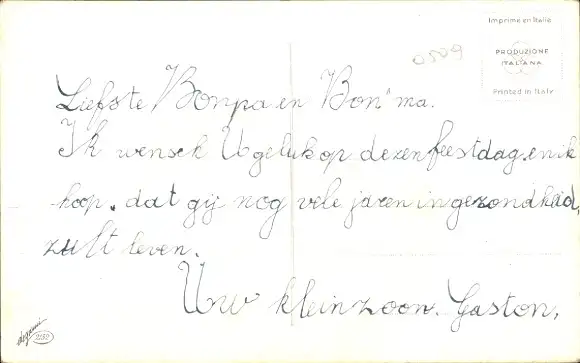 Imprimé en Italie
0509
PRODUZIONE
ITALIANA
Printed in Italy
Liefste Bonpa en Bon"ma.
Ik wensch U geluk op dezen feestdag. en ik
hoop. dat gij nog vele jaren in gezondheid,
zult leven.
Uw kleinzoon. Gaston,
2132